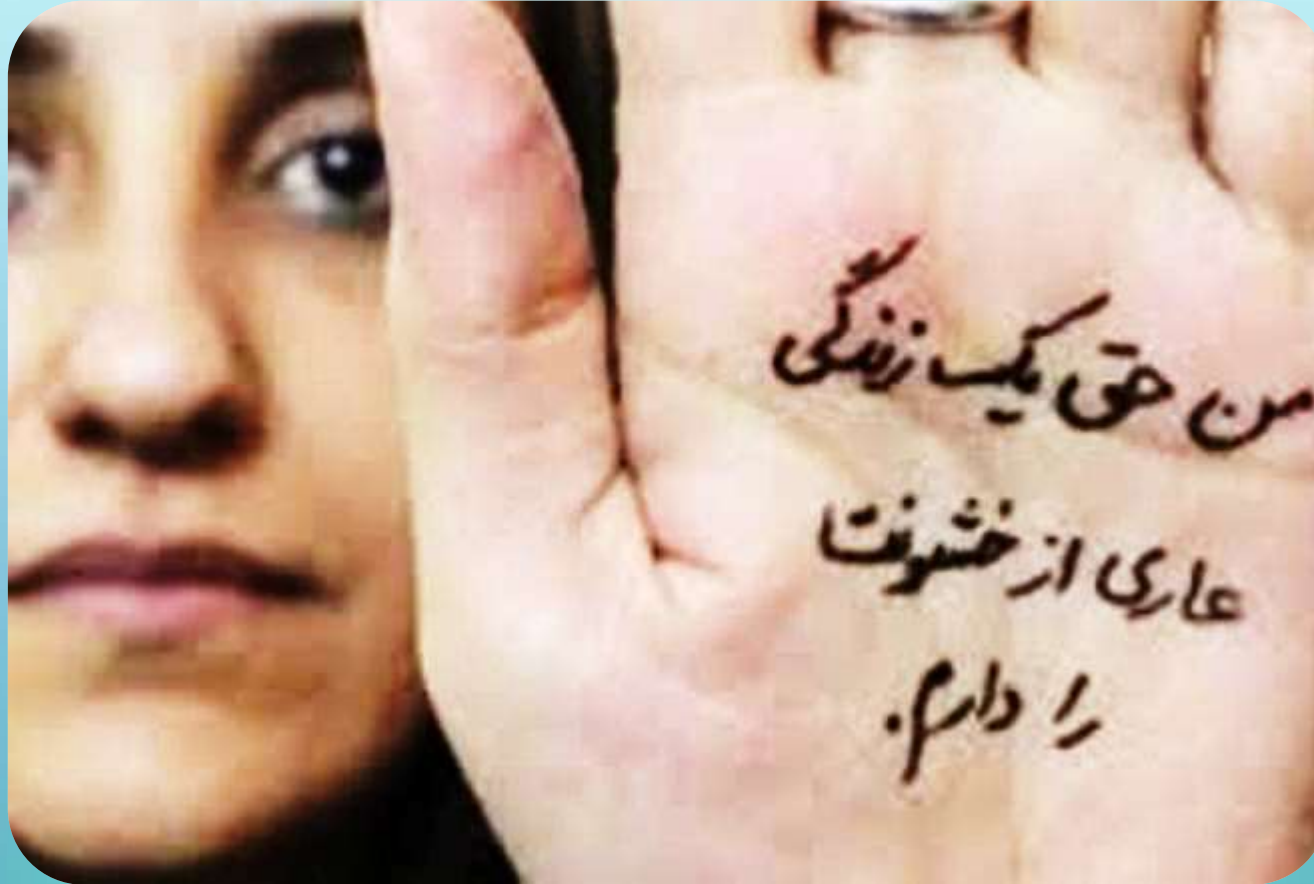 من حتی یک زندگی
عاری از خشونت
را دارم.